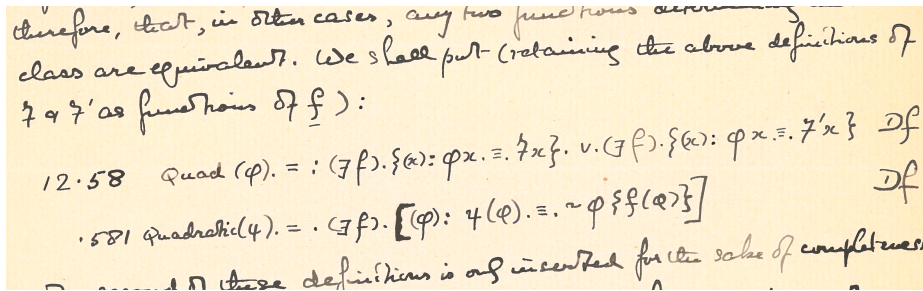 therefore, that, in other cases, any two functions determining
class are equivalent. We shall put (retaining the above definitions of
ʒ & ʒ' as functions of f):
12·58 Quad (φ). = : (∃f). {(x): φx. ≡. ʒx}. v. (∃f). {(x): φx. ≡. ʒ'x} Df
·581 Quadratic(ψ). = . (∃f). [(φ): ψ(φ). ≡. ~ φ{f(φ)}] Df
second of these definitions is only inserted for the sake of completeness